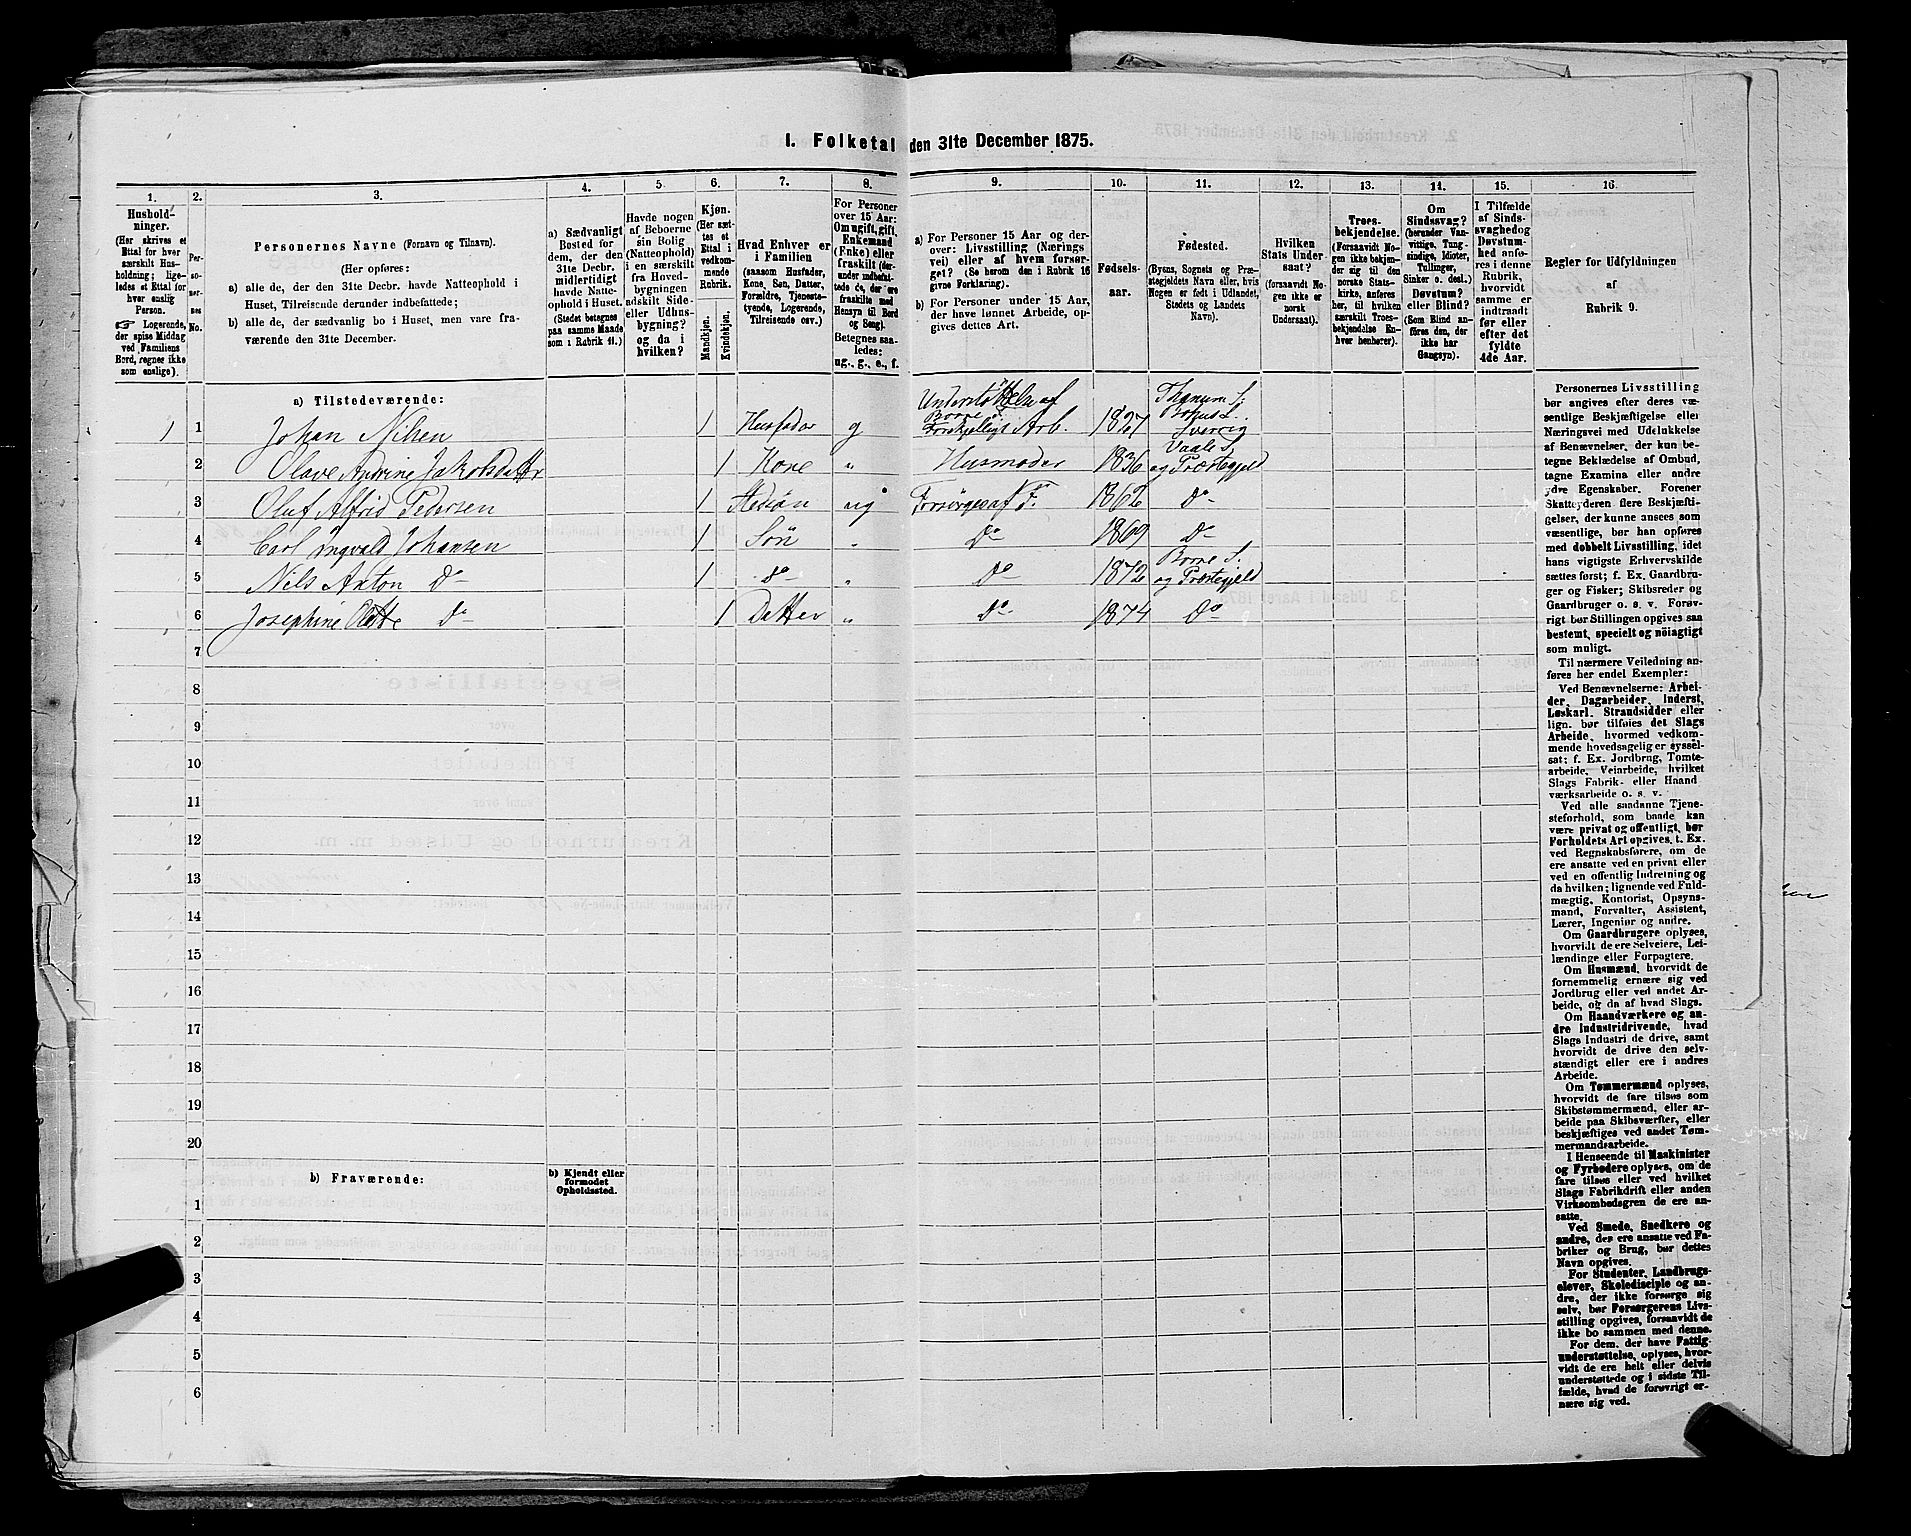 I. Folketal den 31te December 1875.
1.
Hushold-
ninger.
(Her skrives et
Ettal for hver
særskilt Hus-
holdning; lige-
ledes et Ettal for
hver enslig
Person.
☞ Logerende,
der spise Middag
ved Familiens
Bord, regnes ikke
som enslige).
2.
Per-
so-
ner-
nes
No.
3.
Personernes Navne (Fornavn og Tilnavn).
(Her opføres:
a) alle de, der den 31te Decbr. havde Natteophold i
Huset, Tilreisende derunder indbefattede;
b) alle de, der sædvanlig bo i Huset, men vare fra-
værende den 31te December.
4.
a) Sædvanligt
Bosted for
dem, der den
31te Decbr.
midlertidigt
havde Natte-
ophold i Huset.
(Stedet betegnes
paa samme Maade
som i Rubrik 11.)
5.
Havde nogen
af Beboerne
sin Bolig
(Natteophold)
i en særskilt
fra Hoved-
bygningen
adskilt Side-
eller Udhus-
bygning?
og da i
hvilken?
6.
Kjøn.
(Her sæt-
tes et
Ettal i
vedkom-
mende
Rubrik.
Mandkjøn.
Kvindekjøn.
7.
Hvad Enhver er
i Familien
(saasom Husfader,
Kone, Søn, Datter,
Forældre, Tjeneste-
tyende, Logerende,
Tilreisende osv.)
8.
For Personer
over 15 Aar:
Om ugift, gift,
Enkemand
(Enke) eller
fraskilt (der-
under indbefat-
tede de, der ere
fraskilte med
Hensyn til Bord
og Seng).
Betegnes saa-
ledes:
ug., g., e., f.
9.
a) For Personer 15 Aar og der-
over: Livsstilling (Nærings
vei) eller af hvem forsør-
get? (Se herom den i Rubrik 16
givne Forklaring).
b) For Personer under 15 Aar,
der have lønnet Arbeide, op-
gives dettes Art.
10.
Fødsels-
aar.
11.
Fødested.
(Byens, Sognets og Præ-
stegjeldets Navn eller, hvis
Nogen er født i Udlandet,
Stedets og Landets
Navn).
12.
Hvilken
Stats Under-
saat?
(forsaavidt No-
gen ikke er
norsk
Undersaat).
13.
Troes-
bekjendelse.
(Forsaavidt No-
gen ikke bekjen-
der sig til den
norske Stats-
kirke, anføres
her, til hvilken
særskilt Troes-
bekjendelse En-
hver henhører).
14.
Om
Sindssvag?
(herunder Van-
vittige, Tung-
sindige, Idioter,
Tullinger,
Sinker o. desl.)
Døvstum?
eller Blind?
(Som Blind an-
føres den, der
ikke har
Gangsyn).
15.
I Tilfælde
af Sinds-
svaghed og
Døvstum-
hed anfø-
res i denne
Rubrik,
hvorvidt
samme er
indtraadt
før eller
efter det
fyldte
4de Aar.
16
Regler for Udfyldningen
af
Rubrik 9.
a) Tilstedeværende:
1 1 Johan Nilsen 1 Husfader g Understøttelse af Borre Forskjelligt Arb. 1827 Thanum S. Bohus L. Sverrig
2 Olave Andrine Jakobsdatter 1 Kone „ Husmoder 1836 Vaale S. og Præstegjeld
3 Oluf Alfrid Pedersen 1 Stedsøn ug Forsørges af F. 1862 Do
4 Carl Ingvald Johansen 1 Søn „ Do 1869 Do
5 Nils Anton Do 1 do „ Do 1872 Borre S. og Præstegjeld
6 Josephine Do 1 Datter „ Do 1874 Do
7
8
9
10
11
12
13
14
15
16
17
18
19
20
b) Fraværende:
b) Kjendt eller
formodet
Opholdssted.
1
2
3
4
5
6
Personernes Livsstilling
bør angives efter deres væ-
sentlige Beskjæftigelse eller
Næringsvei med Udelukkelse
af Benævnelser, der kun be-
tegne Beklædelse af Ombud,
tagne Examina eller andre
ydre Egenskaber. Forener
Skatteyderen flere Beskjæfti-
gelser, der kunne ansees som
væsentlige, bør han opføres
med dobbelt Livsstilling, idet
hans vigtigste Erhvervskilde
sættes først; f. Ex. Gaardbru-
ger og Fisker; Skibsreder og
Gaardbruger o. s. v. Forøv-
rigt bør Stillingen opgives saa
bestemt, specielt og nöiagtigt
som muligt.
Til nærmere Veiledning an-
føres her endel Exempler:
Ved Benævnelserne: Arbei-
der, Dagarbeider, Inderst,
Løskarl, Strandsidder eller
lign. bør tilføies det Slags
Arbeide, hvormed vedkom-
mende hovedsagelig er syssel-
sat; f. Ex. Jordbrug, Tomte-
arbeide, Veiarbeide, hvilket
Slags Fabrik- eller Haand
værksarbeide o. s. v.
Ved alle saadanne Tjene-
steforhold, som baade kan
være privat og offentligt, bør
Forholdets Art opgives, t. Ex.
ved Regnskabsførere, om de
ere ansatte ved en privat eller
ved en offentlig Indretning og
da hvilken; lignende ved Fuld-
mægtig, Kontorist, Opsyns-
mand, Forvalter, Assistent,
Lærer, Ingeniør og andre.
Om Gaardbrugere oplyses,
hvorvidt de ere Selveiere, Lei-
lændinge eller Forpagtere.
Om Husmænd, hvorvidt de
fornemmelig ernære sig ved
Jordbrug eller ved andet Ar-
beide, og da af hvad Slags.
Om Haandværkere og an-
dre Industridrivende, hvad
Slags Industri de drive, samt
hvorvidt de drive den selv-
stændigt eller ere i andres
Arbeide.
Om Tømmermænd oplyses,
hvorvidt de fare tilsøs som
Skibstømmermænd, eller ar-
beide paa Skibsværfter, eller
beskjæftiges ved andet Tøm-
mermandsarbeide.
I Henseende til Maskinister
og Fyrbødere oplyses, om de
fare tilsøs eller ved hvilket
Slags Fabrikdrift eller anden
Virksombedsgren de ere an-
satte.
Ved Smede, Snedkere og
andre, der ere ansatte ved Fa-
briker og Brug, bør dettes
Navn opgives.
For Studenter, Landbrugs-
elever, Skoledisciple og an-
dre, der ikke forsørge sig
selv, bør Forsørgerens Livs-
stilling opgives, forsaavidt de
ikke bo sammen med denne.
For dem, der have Fattig-
understøttelse, oplyses, hvor-
vidt de ere helt eller delvis
understøttede og i sidste Til-
fælde, hvad de forøvrigt er-
nære sig ved.